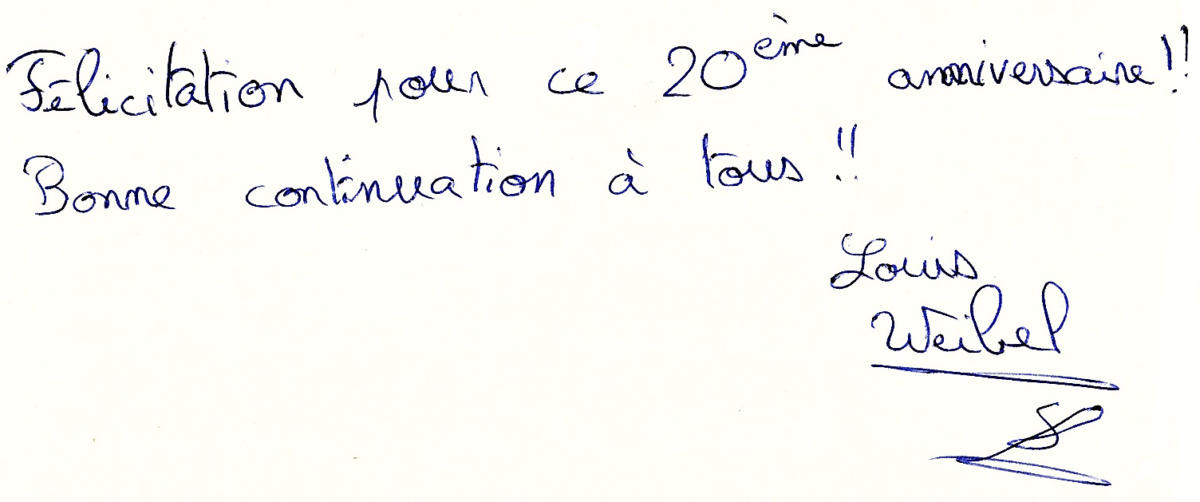 Félicitation pour ce 20ème anniversaire!!
Bonne continuation à tous!!
Louis
Weibel